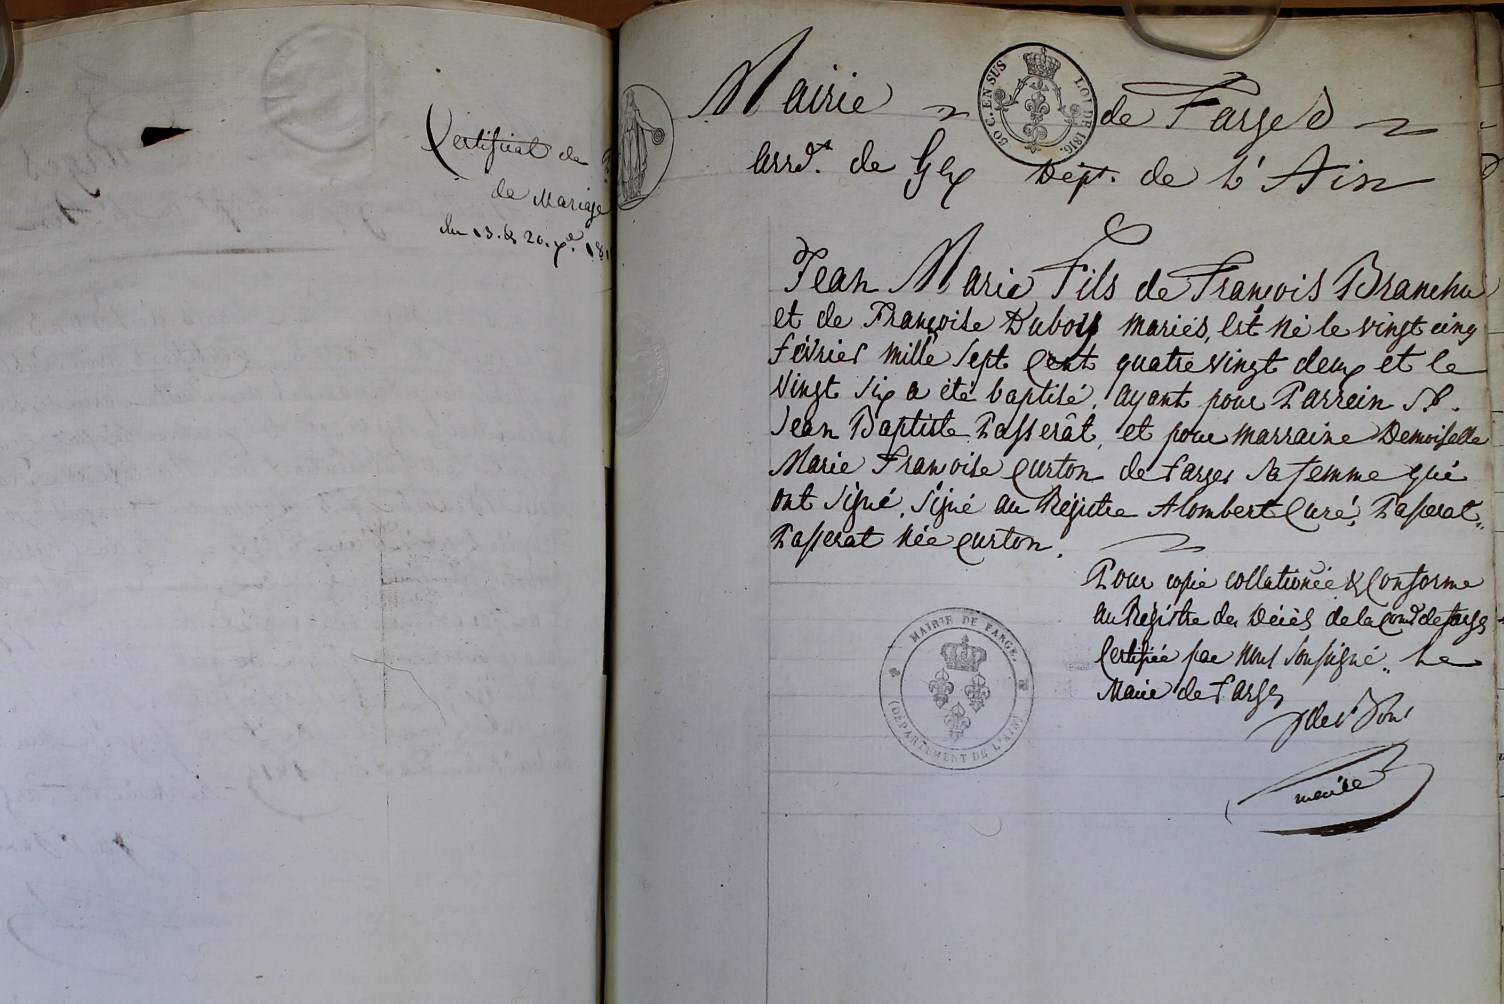 Certificat de
de Mariage
du 13. & 20. Xe. 181
Mairie de Farges
50 C. EN SUS LOI DE 1816.
arrdt. de Gex Dépt. de L'Ain
Jean Marie Fils de François Branchu
et de Françoise Dubois mariés, est né le vingt cinq
février mille sept cent quatre vingt deux et le
vingt six a été baptisé, ayant pour Parrein Sr.
Jean Baptiste Passerât, et pour marraine Demoiselle
Marie Françoise Curton de farges sa femme qui
ont signé. signé au Régistre Alombert Curé, Passerat,
Passerat née Curton.
Pour copie collationée & Conforme
au Régistre des Décès de la Come de farges
Certifiée par Nous soussigné. Le
Maire de Farges
MAIRIE DE FARGE.
(DÉPARTEMENT DE L'AIN)
maire